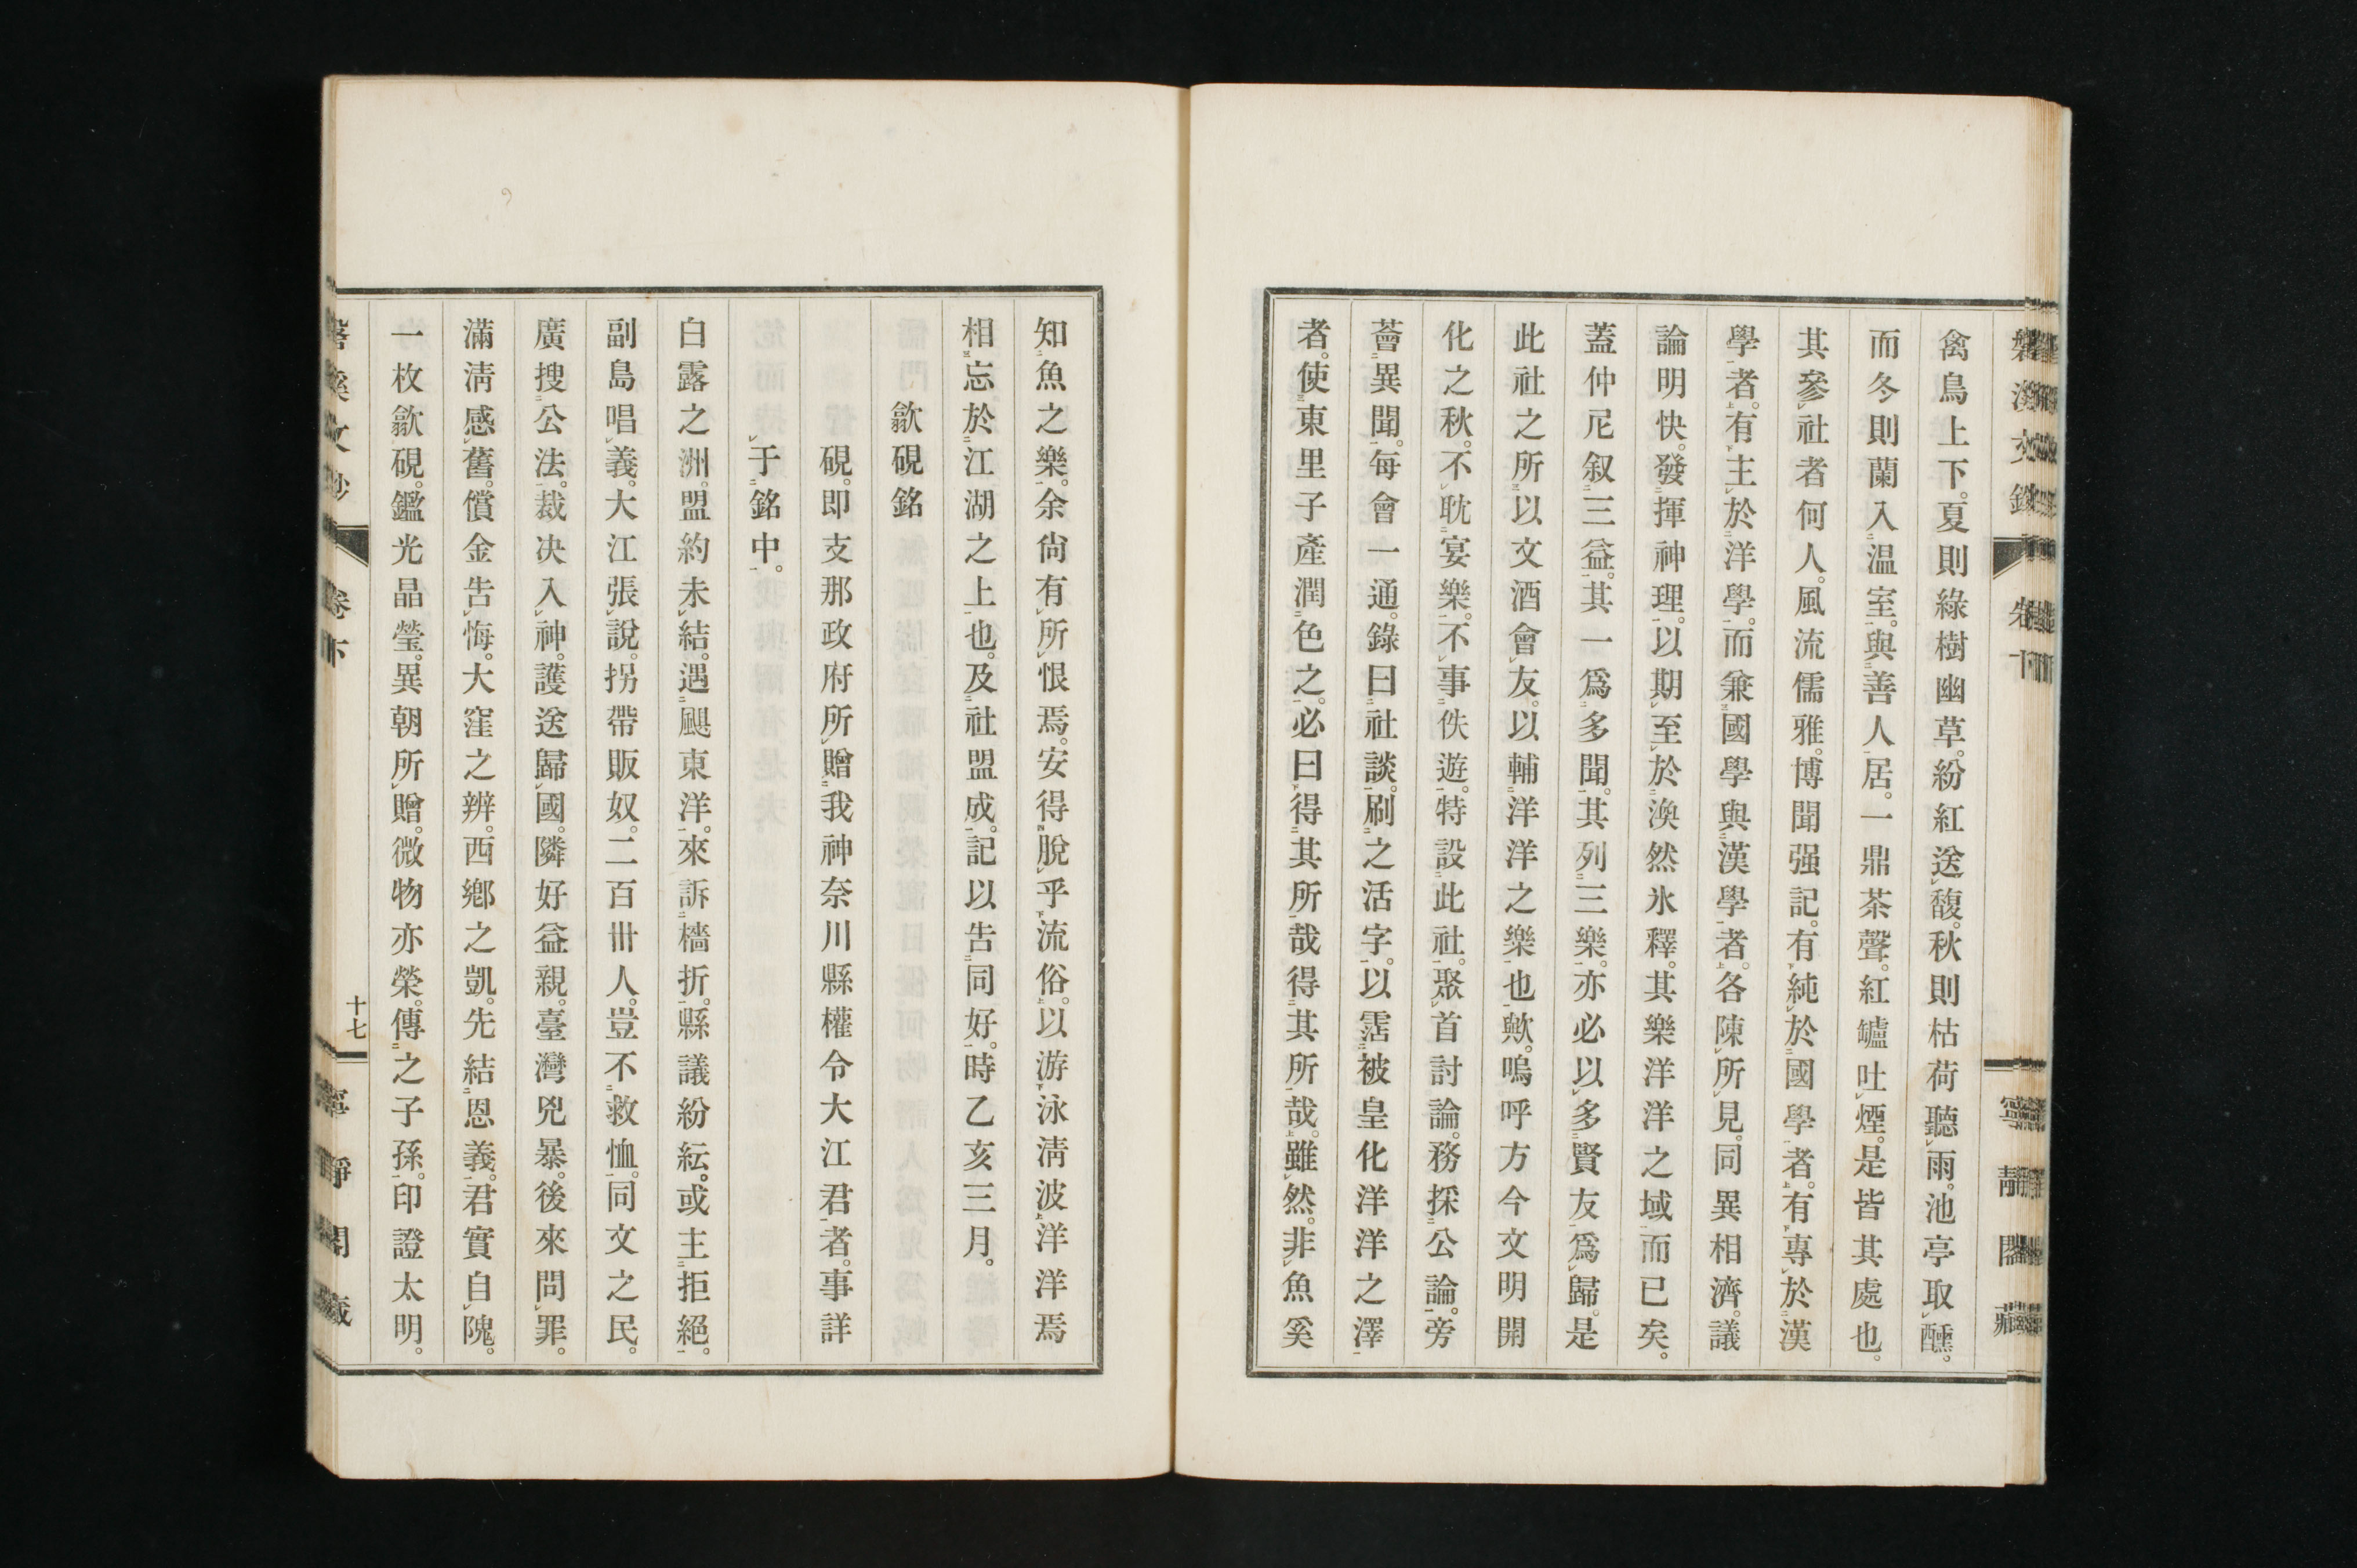 禽鳥上下。夏則綠樹幽草。紛紅送馥。秋則枯荷聽雨。池亭取醺。
而冬則蘭入温室。與善人居。一鼎茶聲。紅罏吐煙。是皆其處也。
其參社者何人。風流儒雅。博聞强記。有純於國學者。有專於漢
學者。有主於洋學。而兼國學與漢學者。各陳所見。同異相濟。議
論明快。發揮神理。以期至於渙然氷釋。其樂洋洋之域而已矣。
蓋仲尼叙三益。其一爲多聞。其列三樂。亦必以多賢友爲歸。是
此社之所以文酒會友。以輔洋洋之樂也歟。嗚呼方今文明開
化之秋。不耽宴樂。不事佚遊。特設此社。聚首討論。務採公論。旁
薈異聞。每會一通。錄曰社談。刷之活字。以霑被皇化洋洋之澤
者。使東里子產潤色之。必曰得其所哉得其所哉。雖然。非魚奚
知魚之樂。余尙有所恨焉。安得脫乎流俗。以游泳淸波洋洋焉
相忘於江湖之上也。及社盟成。記以告同好。時乙亥三月。
歙硯銘
硯。即支那政府所贈我神奈川縣權令大江君者。事詳
于銘中。
白露之洲。盟約未結。遇颶東洋。來訴檣折。縣議紛紜。或主拒絕。
副島唱義。大江張說。拐帶販奴。二百卅人。豈不救恤。同文之民。
廣搜公法。裁决入神。護送歸國。隣好益親。臺灣兇暴。後來問罪。
滿淸感舊。償金告悔。大窪之辨。西鄕之凱。先結恩義。君實自隗。
一枚歙硯。鑑光晶瑩。異朝所贈。微物亦榮。傳之子孫。印證太明。
卷下
十七
寧靜閣藏